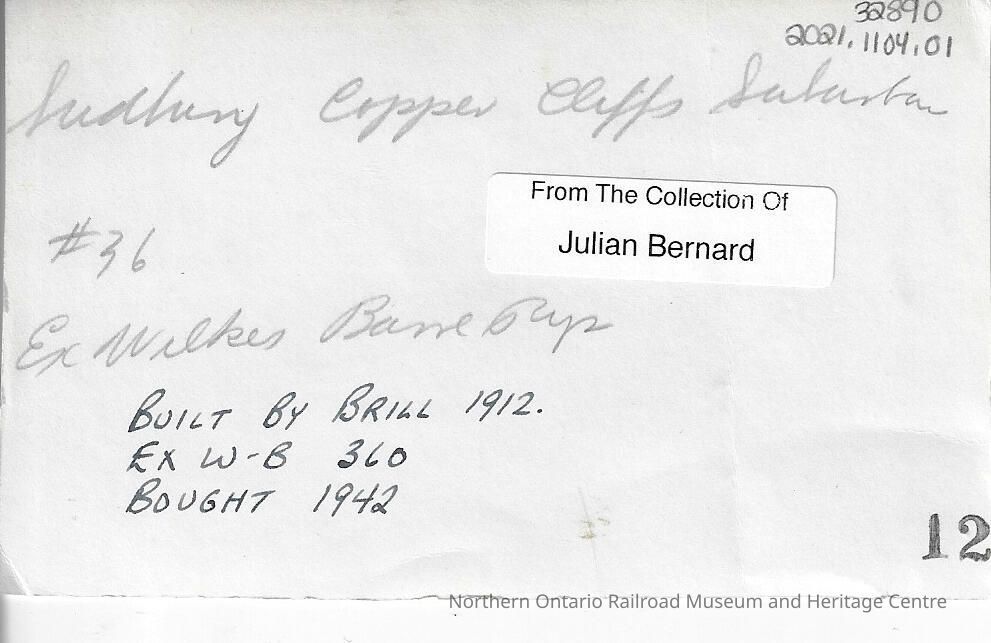 32890
2021.1104.01
Sudbury Copper Cliffs Suburban
From The Collection Of
Julian Bernard
#36
Ex Wilkes Barre Rys
BUILT BY BRILL 1912.
EX W-B 360
BOUGHT 1942
12
Northern Ontario Railroad Museum and Heritage Centre